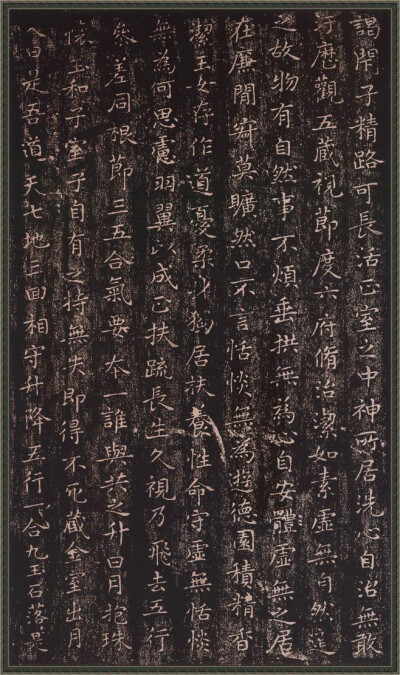 謁閉子精路可長活正室之中神所居洗心自治無敢
汙歷觀五藏視節度六府脩治潔如素虛無自然道
之故物有自然事不煩垂拱無為心自安體虛無之居
在廉間寂莫曠然口不言恬惔無為遊德園積精香
潔玉女存作道憂柔身獨居扶養性命守虛無恬惔
無為何思慮羽翼以成正扶疏長生久視乃飛去五行
參差同根節三五合氣要本一誰與共之升日月抱珠
懷玉和子室子自有之持無失即得不死藏金室出月
入日是吾道天七地三回相守升降五行一合九玉石落是